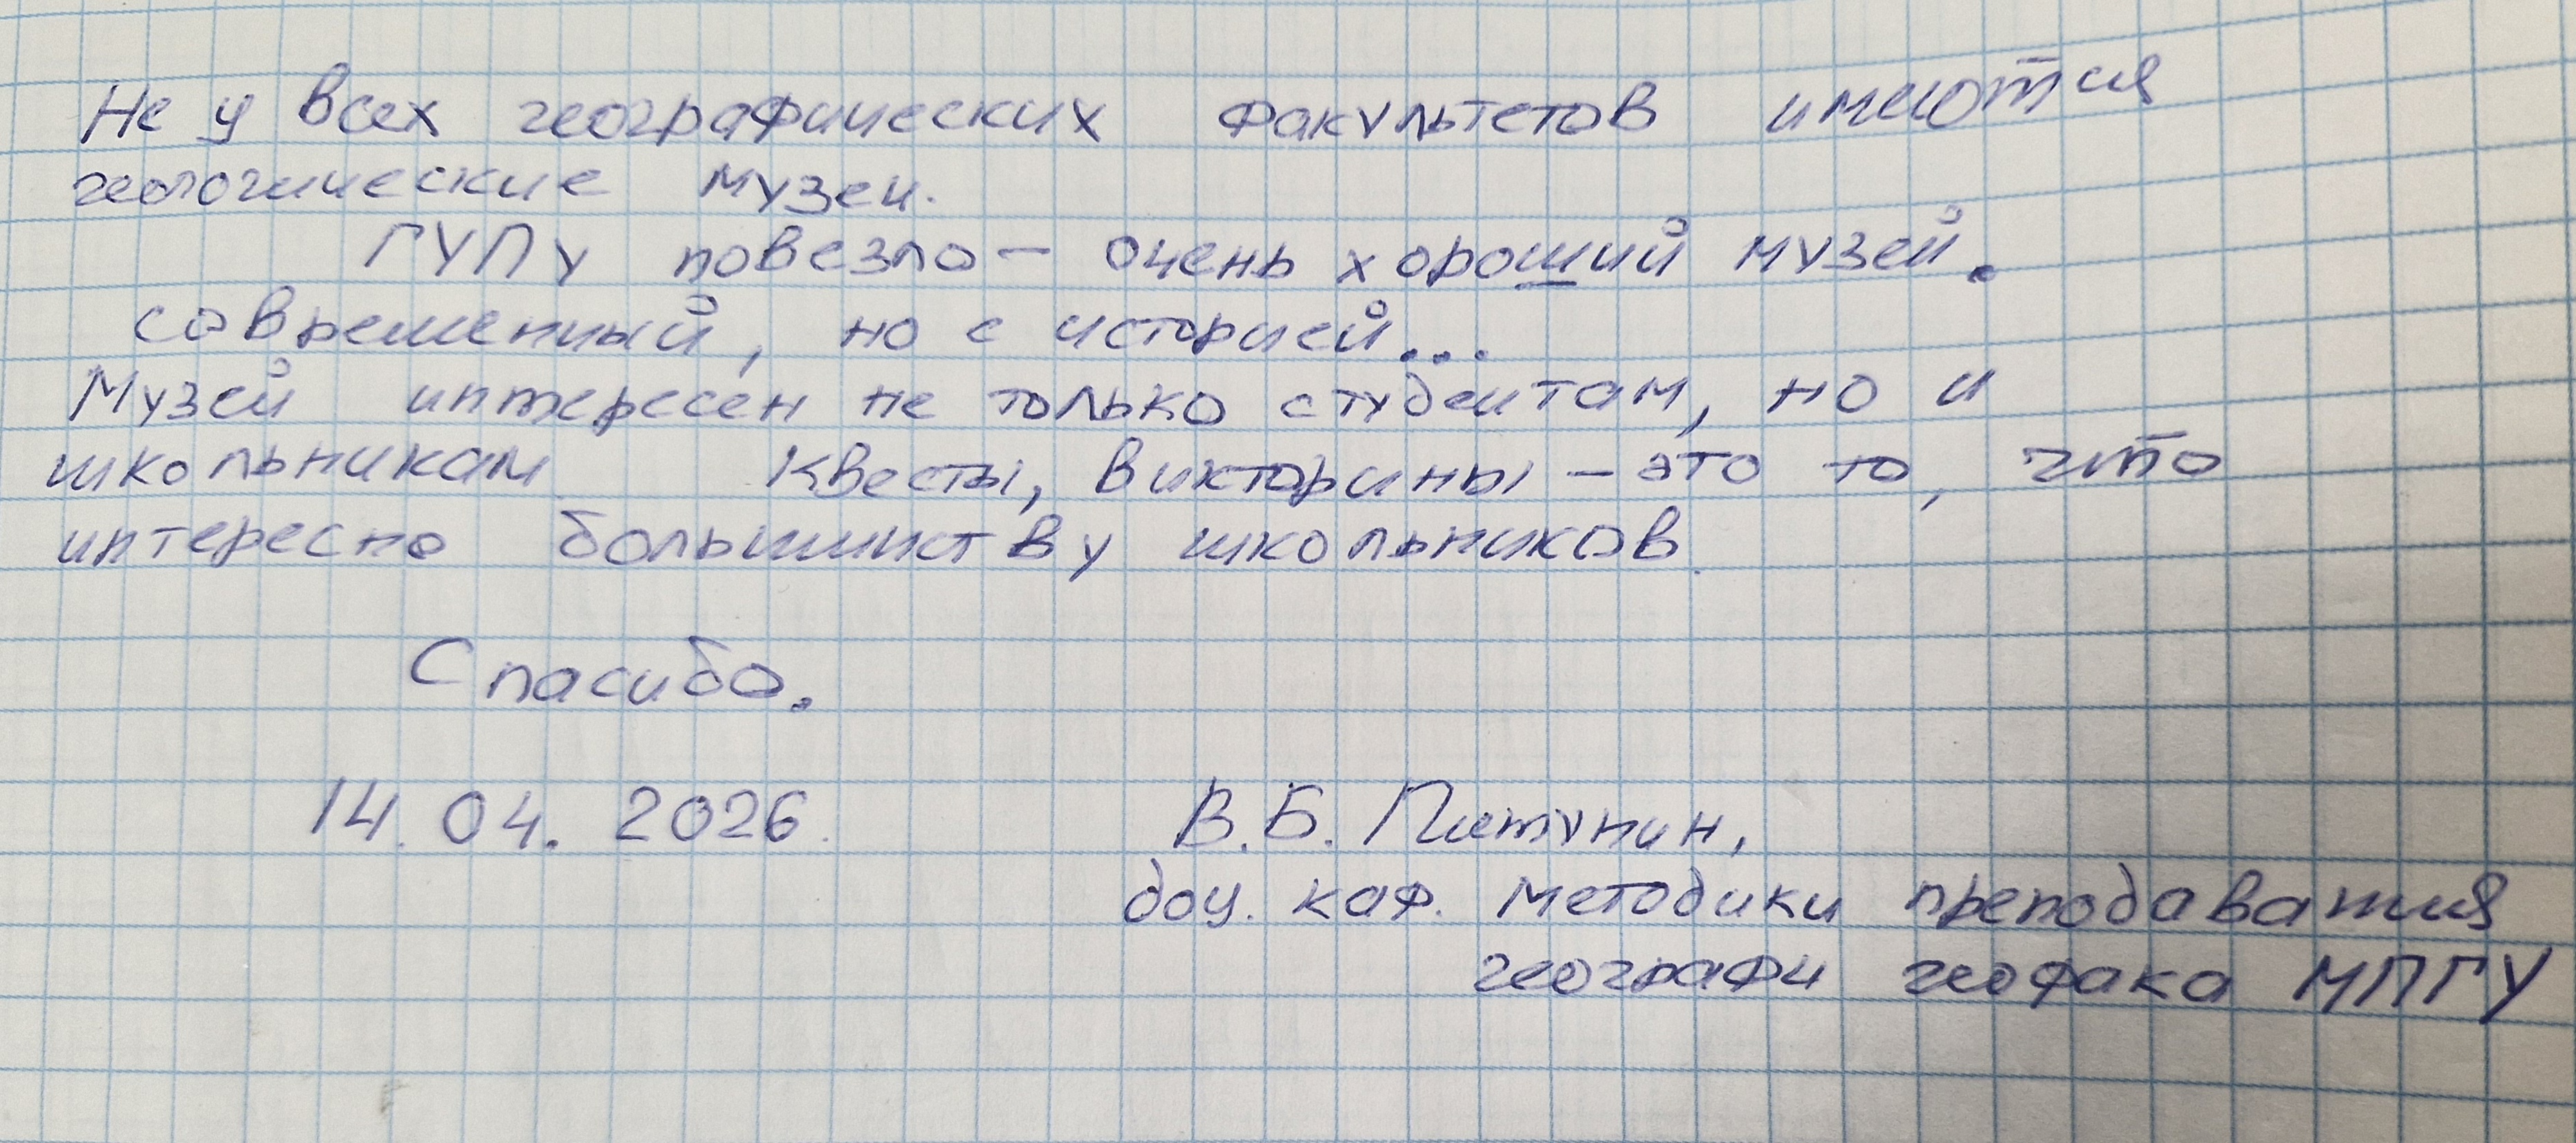 Не у всех географических факультетов имеются
геологические музеи.
ГУПу повезло – очень хороший музей.
современный, но с историей...
Музей интересен не только студентам, но и
школьникам. Квесты, викторины – это то, что
интересно большинству школьников.
Спасибо.
14.04.2026.
В.Б. Пятунин,
доц. каф. методики преподавания
географи геофака МПГУ